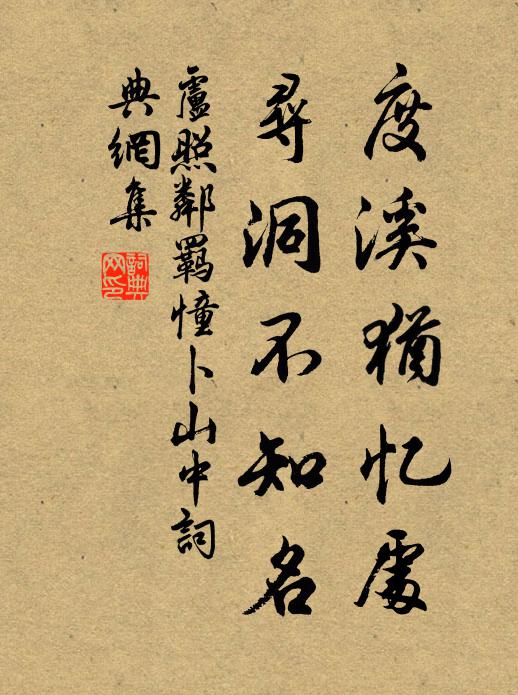 度溪猶忆處
尋洞不知名
盧照鄰羁憧卜山中詞
典網集
詞典網印